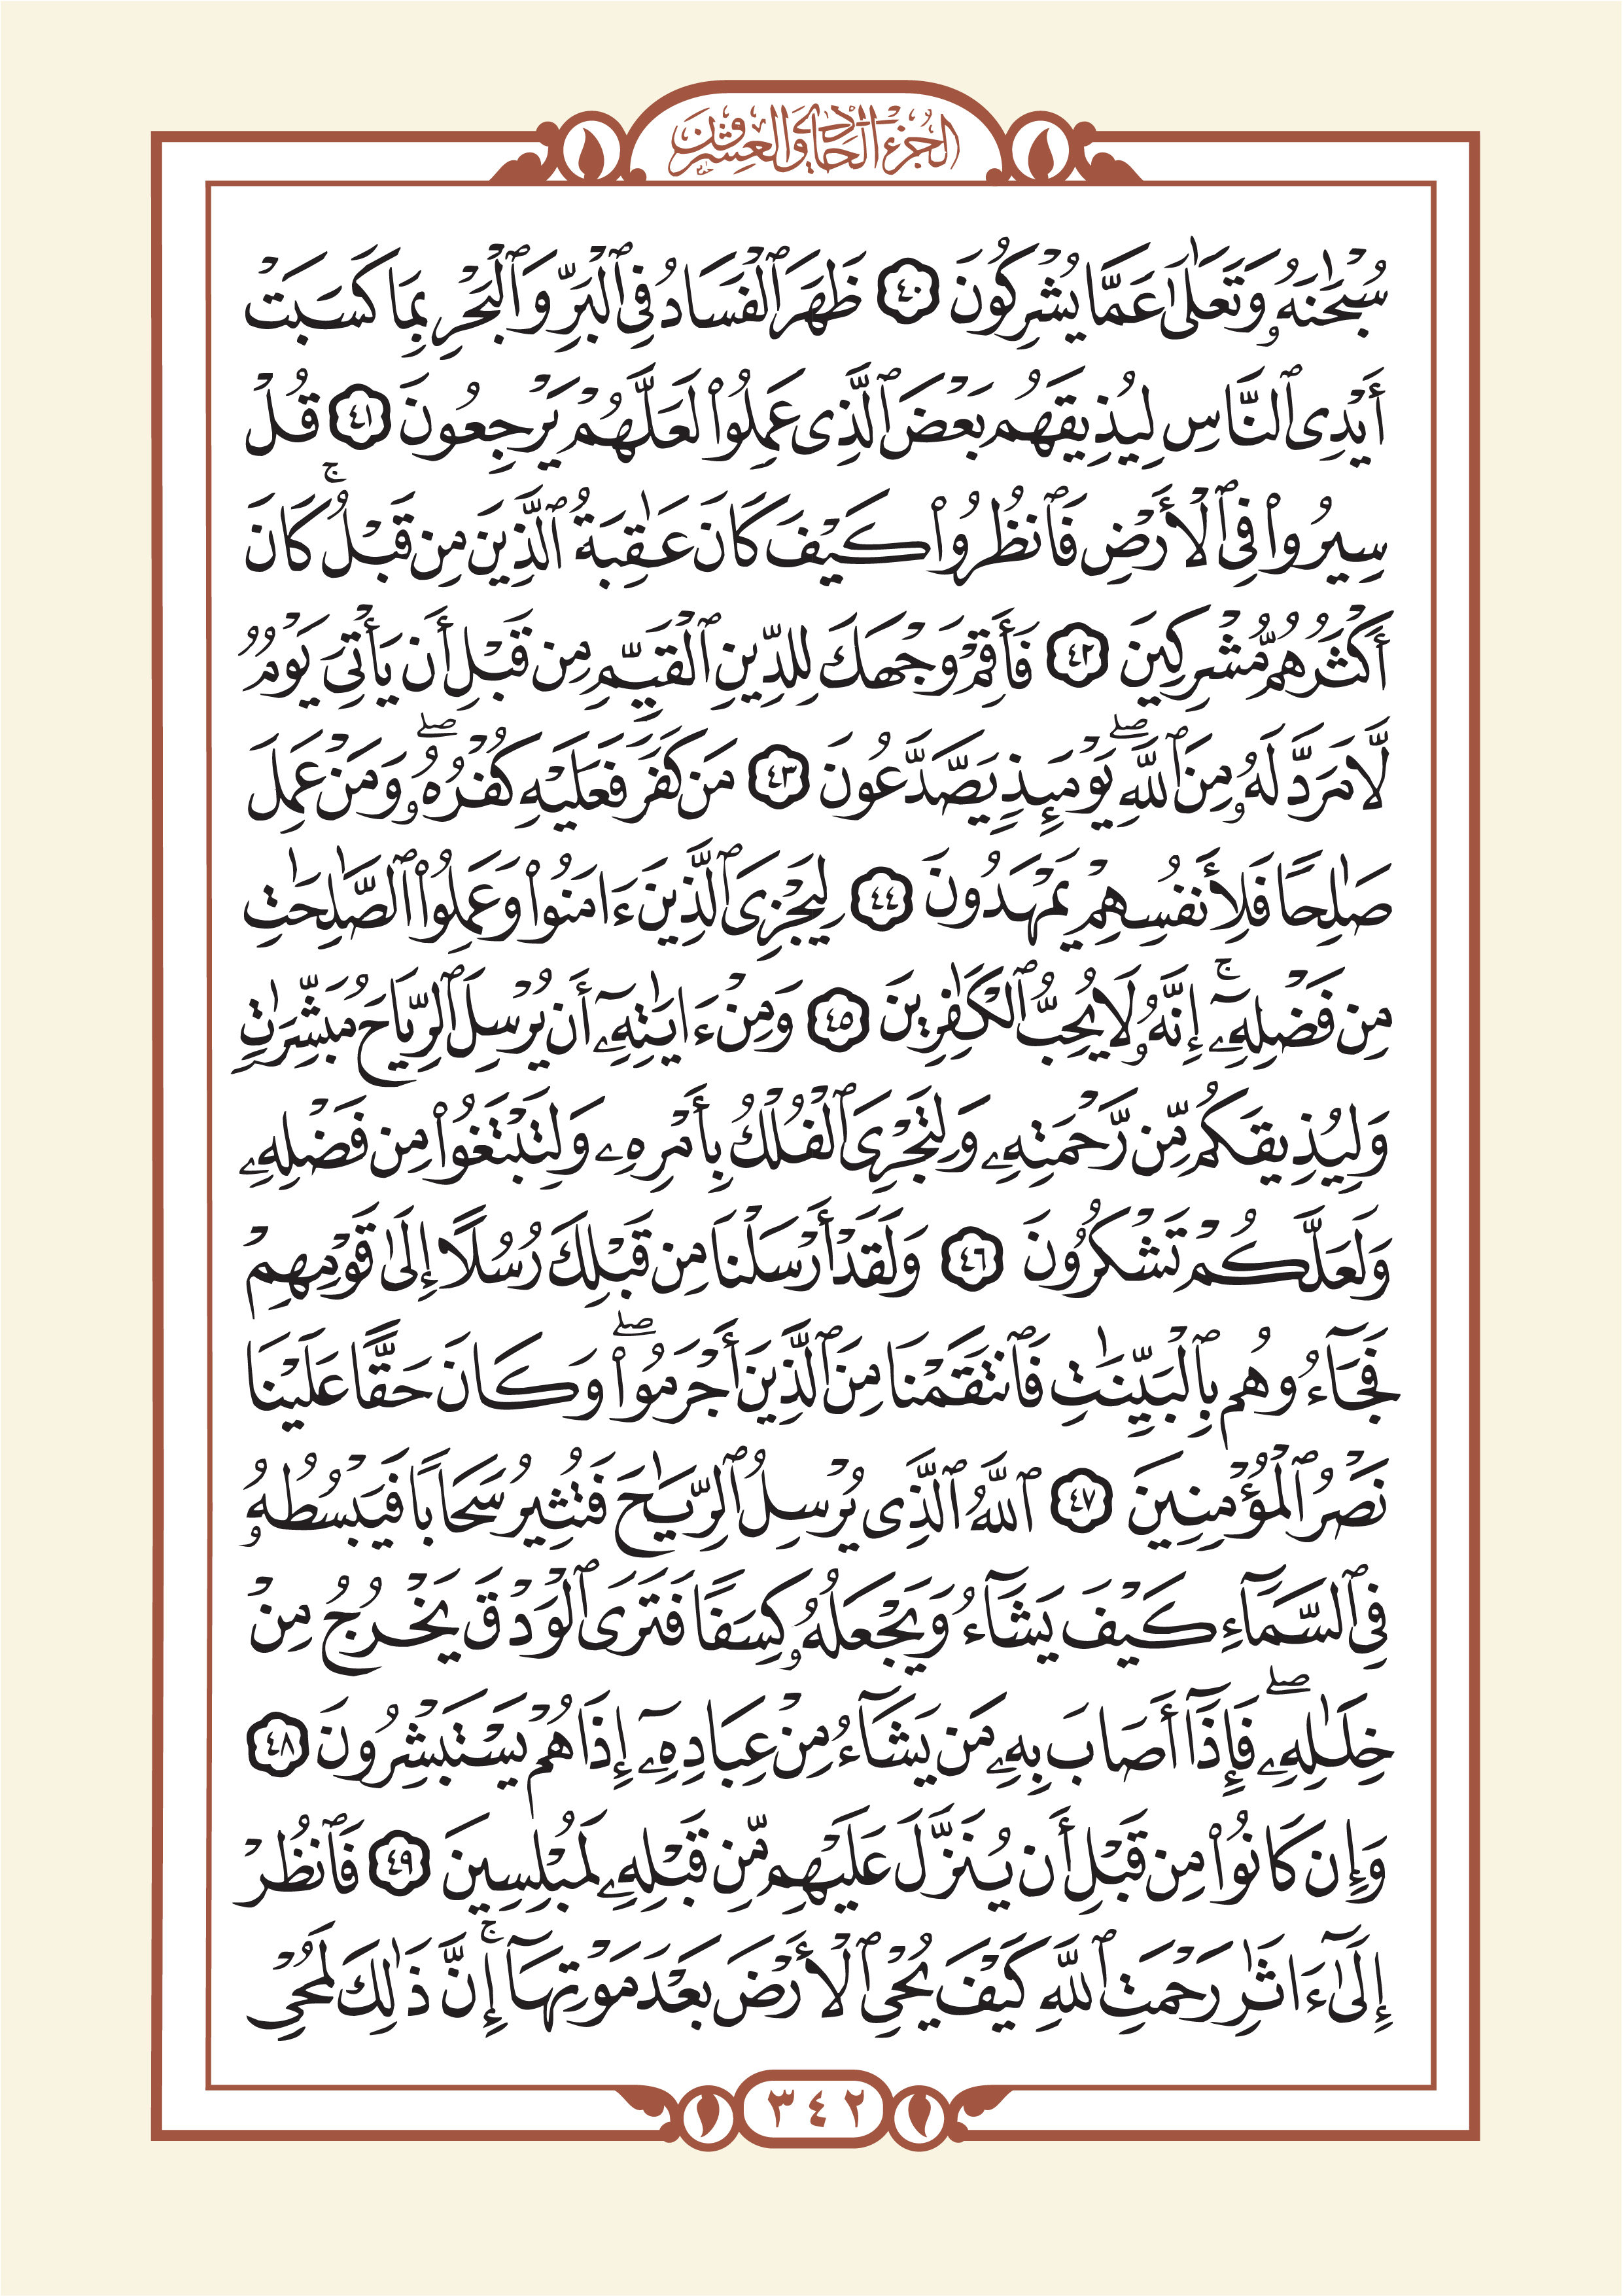 الجزء الحادي والعشرون
سُبْحَٰنَهُۥ وَتَعَٰلَىٰ عَمَّا يُشْرِكُونَ ٤٠ ظَهَرَ ٱلْفَسَادُ فِى ٱلْبَرِّ وَٱلْبَحْرِ بِمَا كَسَبَتْ
أَيْدِى ٱلنَّاسِ لِيُذِيقَهُم بَعْضَ ٱلَّذِى عَمِلُوا۟ لَعَلَّهُمْ يَرْجِعُونَ ٤١ قُلْ
سِيرُوا۟ فِى ٱلْأَرْضِ فَٱنظُرُوا۟ كَيْفَ كَانَ عَٰقِبَةُ ٱلَّذِينَ مِن قَبْلُ ۚ كَانَ
أَكْثَرُهُم مُّشْرِكِينَ ٤٢ فَأَقِمْ وَجْهَكَ لِلدِّينِ ٱلْقَيِّمِ مِن قَبْلِ أَن يَأْتِىَ يَوْمٌ
لَّا مَرَدَّ لَهُۥ مِنَ ٱللَّهِ ۖ يَوْمَئِذٍ يَصَّدَّعُونَ ٤٣ مَن كَفَرَ فَعَلَيْهِ كُفْرُهُۥ ۖ وَمَنْ عَمِلَ
صَٰلِحًا فَلِأَنفُسِهِمْ يَمْهَدُونَ ٤٤ لِيَجْزِىَ ٱلَّذِينَ ءَامَنُوا۟ وَعَمِلُوا۟ ٱلصَّٰلِحَٰتِ
مِن فَضْلِهِۦٓ ۚ إِنَّهُۥ لَا يُحِبُّ ٱلْكَٰفِرِينَ ٤٥ وَمِنْ ءَايَٰتِهِۦٓ أَن يُرْسِلَ ٱلرِّيَاحَ مُبَشِّرَٰتٍ
وَلِيُذِيقَكُم مِّن رَّحْمَتِهِۦ وَلِتَجْرِىَ ٱلْفُلْكُ بِأَمْرِهِۦ وَلِتَبْتَغُوا۟ مِن فَضْلِهِۦ
وَلَعَلَّكُمْ تَشْكُرُونَ ٤٦ وَلَقَدْ أَرْسَلْنَا مِن قَبْلِكَ رُسُلًا إِلَىٰ قَوْمِهِمْ
فَجَآءُوهُم بِٱلْبَيِّنَٰتِ فَٱنتَقَمْنَا مِنَ ٱلَّذِينَ أَجْرَمُوا۟ ۖ وَكَانَ حَقًّا عَلَيْنَا
نَصْرُ ٱلْمُؤْمِنِينَ ٤٧ ٱللَّهُ ٱلَّذِى يُرْسِلُ ٱلرِّيَٰحَ فَتُثِيرُ سَحَابًا فَيَبْسُطُهُۥ
فِى ٱلسَّمَآءِ كَيْفَ يَشَآءُ وَيَجْعَلُهُۥ كِسَفًا فَتَرَى ٱلْوَدْقَ يَخْرُجُ مِنْ
خِلَٰلِهِۦ ۖ فَإِذَآ أَصَابَ بِهِۦ مَن يَشَآءُ مِنْ عِبَادِهِۦٓ إِذَا هُمْ يَسْتَبْشِرُونَ ٤٨
وَإِن كَانُوا۟ مِن قَبْلِ أَن يُنَزَّلَ عَلَيْهِم مِّن قَبْلِهِۦ لَمُبْلِسِينَ ٤٩ فَٱنظُرْ
إِلَىٰٓ ءَاثَٰرِ رَحْمَتِ ٱللَّهِ كَيْفَ يُحْىِ ٱلْأَرْضَ بَعْدَ مَوْتِهَآ ۚ إِنَّ ذَٰلِكَ لَمُحْىِ
٣٤٢